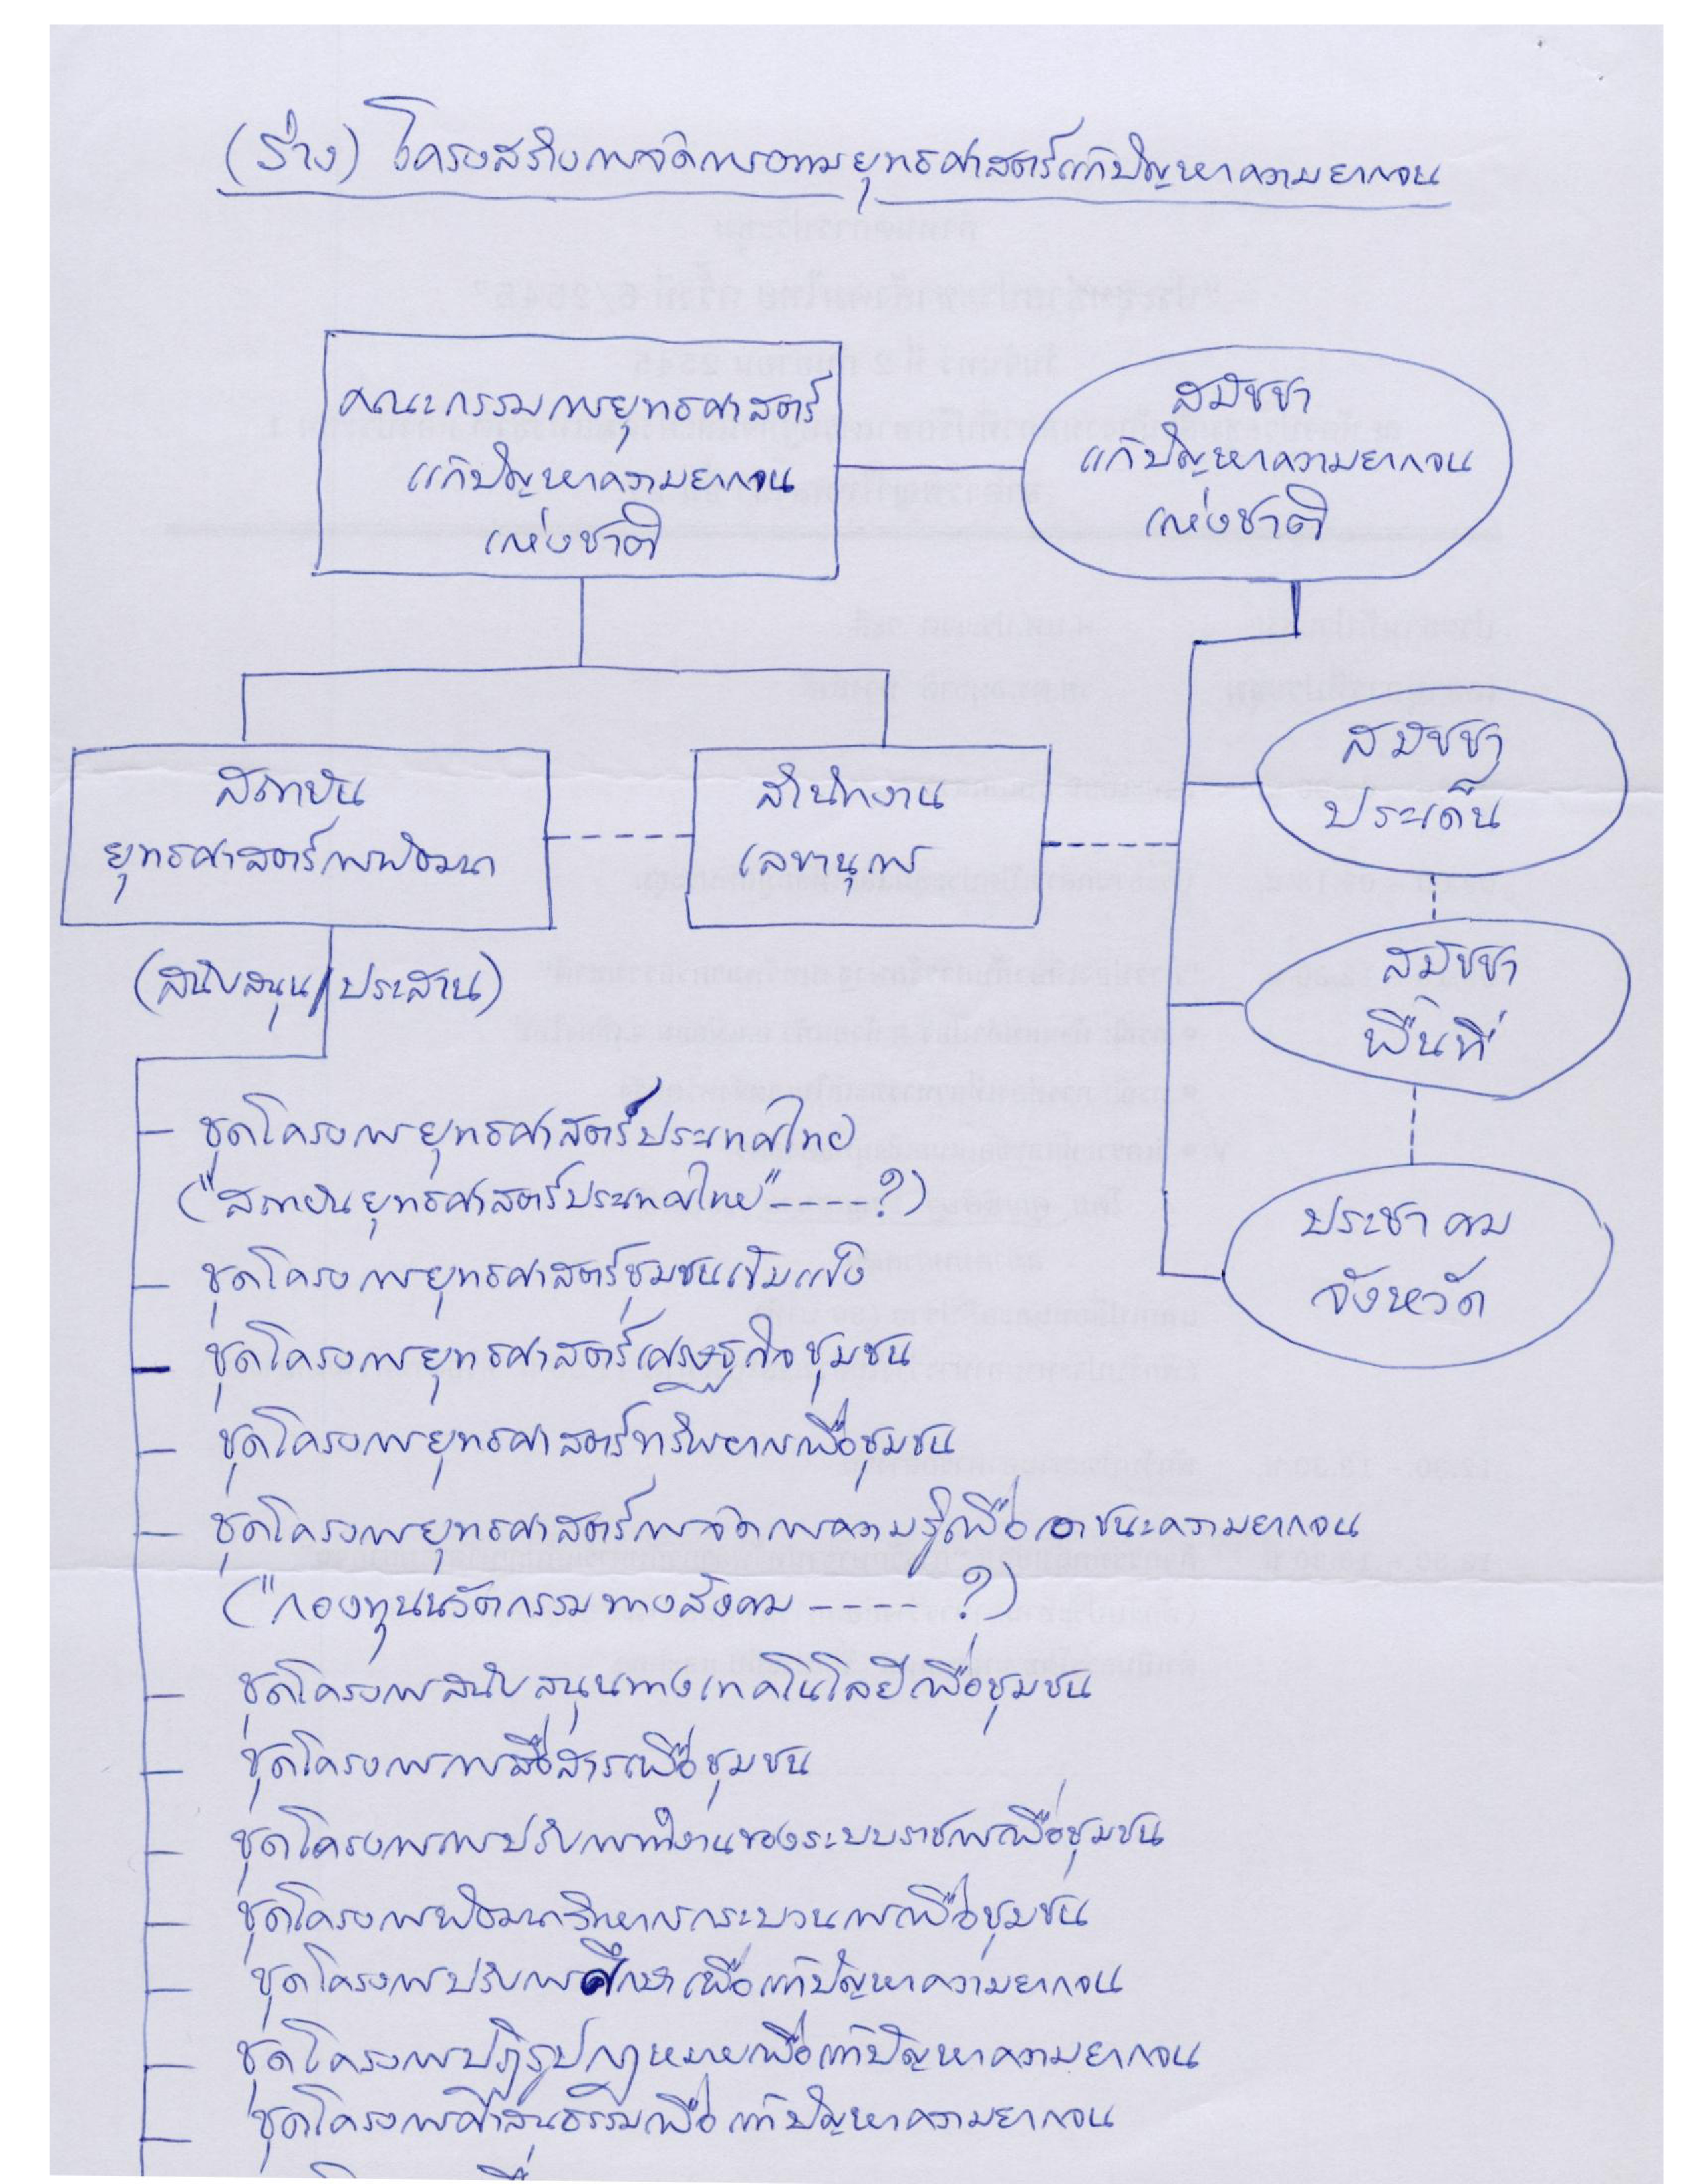 (ร่าง) โครงสร้างการจัดการตามยุทธศาสตร์แก้ปัญหาความยากจน
คณะกรรมการยุทธศาสตร์
แก้ปัญหาความยากจน
แห่งชาติ
สมัชชา
แก้ปัญหาความยากจน
แห่งชาติ
สถาบัน
ยุทธศาสตร์การพัฒนา
สำนักงาน
เลขานุการ
สมัชชา
ประเด็น
สมัชชา
พื้นที่
ประชาคม
จังหวัด
(สนับสนุน/ประสาน)
ชุดโครงการยุทธศาสตร์ประเทศไทย
("สถาบันยุทธศาสตร์ประเทศไทย"----?)
ชุดโครงการยุทธศาสตร์ชุมชนเข้มแข็ง
ชุดโครงการยุทธศาสตร์เศรษฐกิจชุมชน
ชุดโครงการยุทธศาสตร์ทรัพยากรเพื่อชุมชน
ชุดโครงการยุทธศาสตร์การจัดการความรู้เพื่อเอาชนะความยากจน
("กองทุนนวัตกรรมทางสังคม ---- ?)
ชุดโครงการสนับสนุนทางเทคโนโลยีเพื่อชุมชน
ชุดโครงการการสื่อสารเพื่อชุมชน
ชุดโครงการการปรับการทำงานของระบบราชการเพื่อชุมชน
ชุดโครงการพัฒนาวิทยากรกระบวนการเพื่อชุมชน
ชุดโครงการปรับการศึกษาเพื่อแก้ปัญหาความยากจน
ชุดโครงการปฏิรูปกฎหมายเพื่อแก้ปัญหาความยากจน
ชุดโครงการศาสนธรรมเพื่อแก้ปัญหาความยากจน